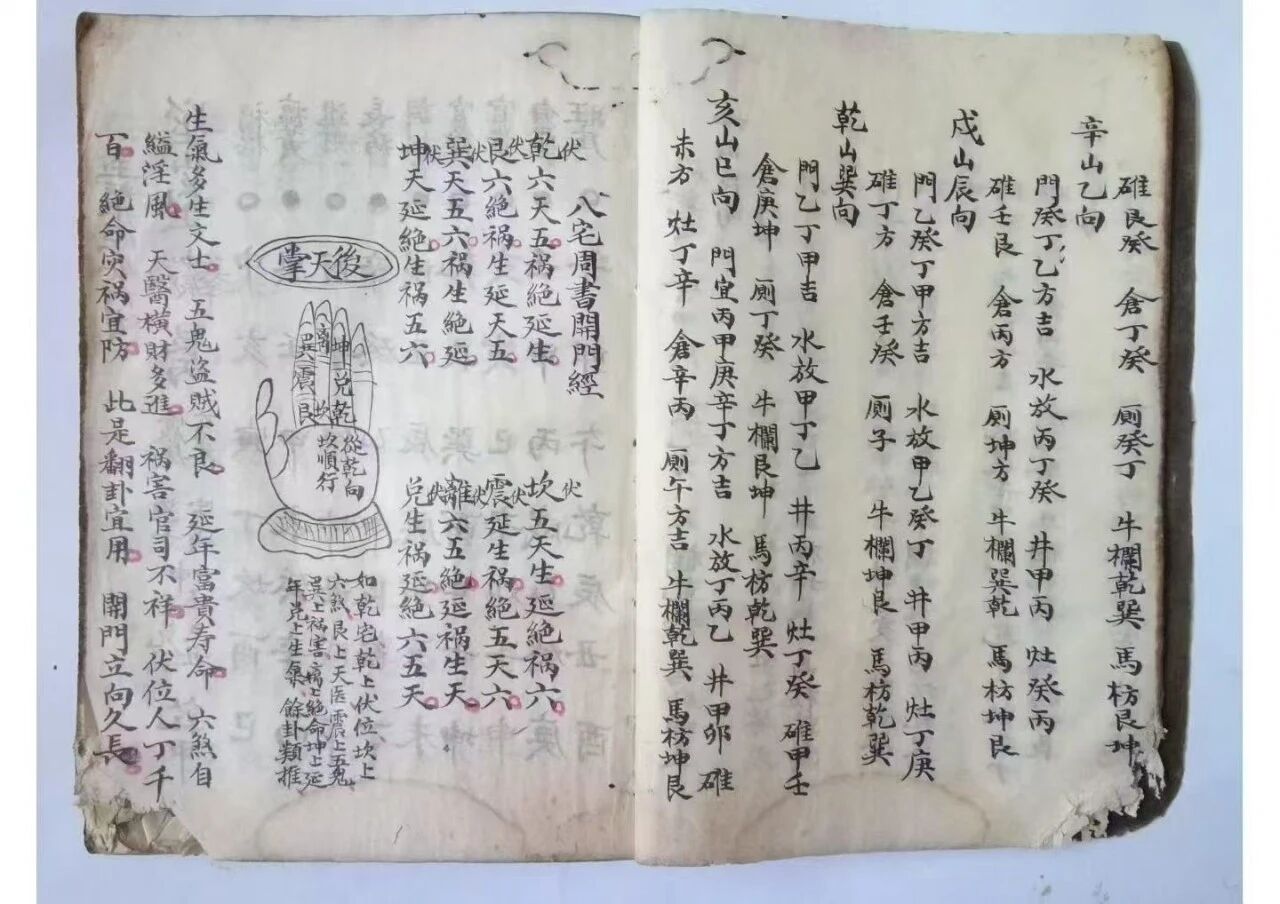 碓艮癸　倉丁癸　厠癸丁　牛欄乾巽　馬枋艮坤
辛山乙向
門癸丁乙方吉　水放丙丁癸　井甲丙　灶癸丙
碓壬艮　倉丙方　厠坤方　牛欄巽乾　馬枋坤艮
戍山辰向
門乙癸丁甲方吉　水放甲乙癸丁　井甲丙　灶丁庚
碓丁方　倉壬癸　厠子　牛欄坤艮　馬枋乾巽
乾山巽向
門乙丁甲吉　水放甲丁乙　井丙辛　灶丁癸　碓甲壬
倉庚坤　厠丁癸　牛欄艮坤　馬枋乾巽
亥山巳向　門宜丙甲庚辛丁方吉　水放丁丙乙　井甲卯　碓
未方　灶丁辛　倉辛丙　厠午方吉　牛欄乾巽　馬枋坤艮
八宅周書開門經
乾伏六天五祸絶延生　坎伏五天生延絶祸六
艮伏六絶祸生延天五　震伏延生祸絶五天六
巽伏天五六祸生絶延　離伏六五絶延祸生天
坤伏天延絶生祸五六　兑伏生祸延絶六五天
後天掌
坤
離
巽
兑
震
乾
坎
艮
從乾向
坎順行
如乾宅乾上伏位坎上
六煞艮上天医震上五鬼
巽上祸害离上絶命坤上延
年兑上生氣　餘卦類推
生氣多生文士　五鬼盗贼不良　延年富貴寿命　六煞自
縊淫風　天醫横財多進　祸害官司不祥　伏位人丁千
百　絶命灾祸宜防　此是翻卦宜用　開門立向久長